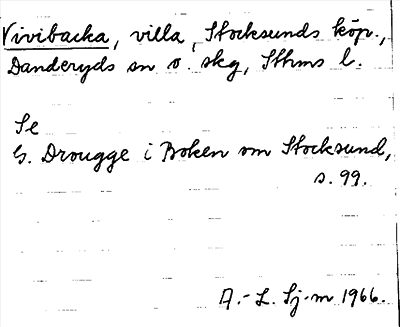 Vivibacka, villa, Stocksunds köp.,
Danderyds sn o. skg, Sthms l.
Se
G. Drougge i Boken om Stocksund,
s. 99.
A.-L. Sj-m 1966.